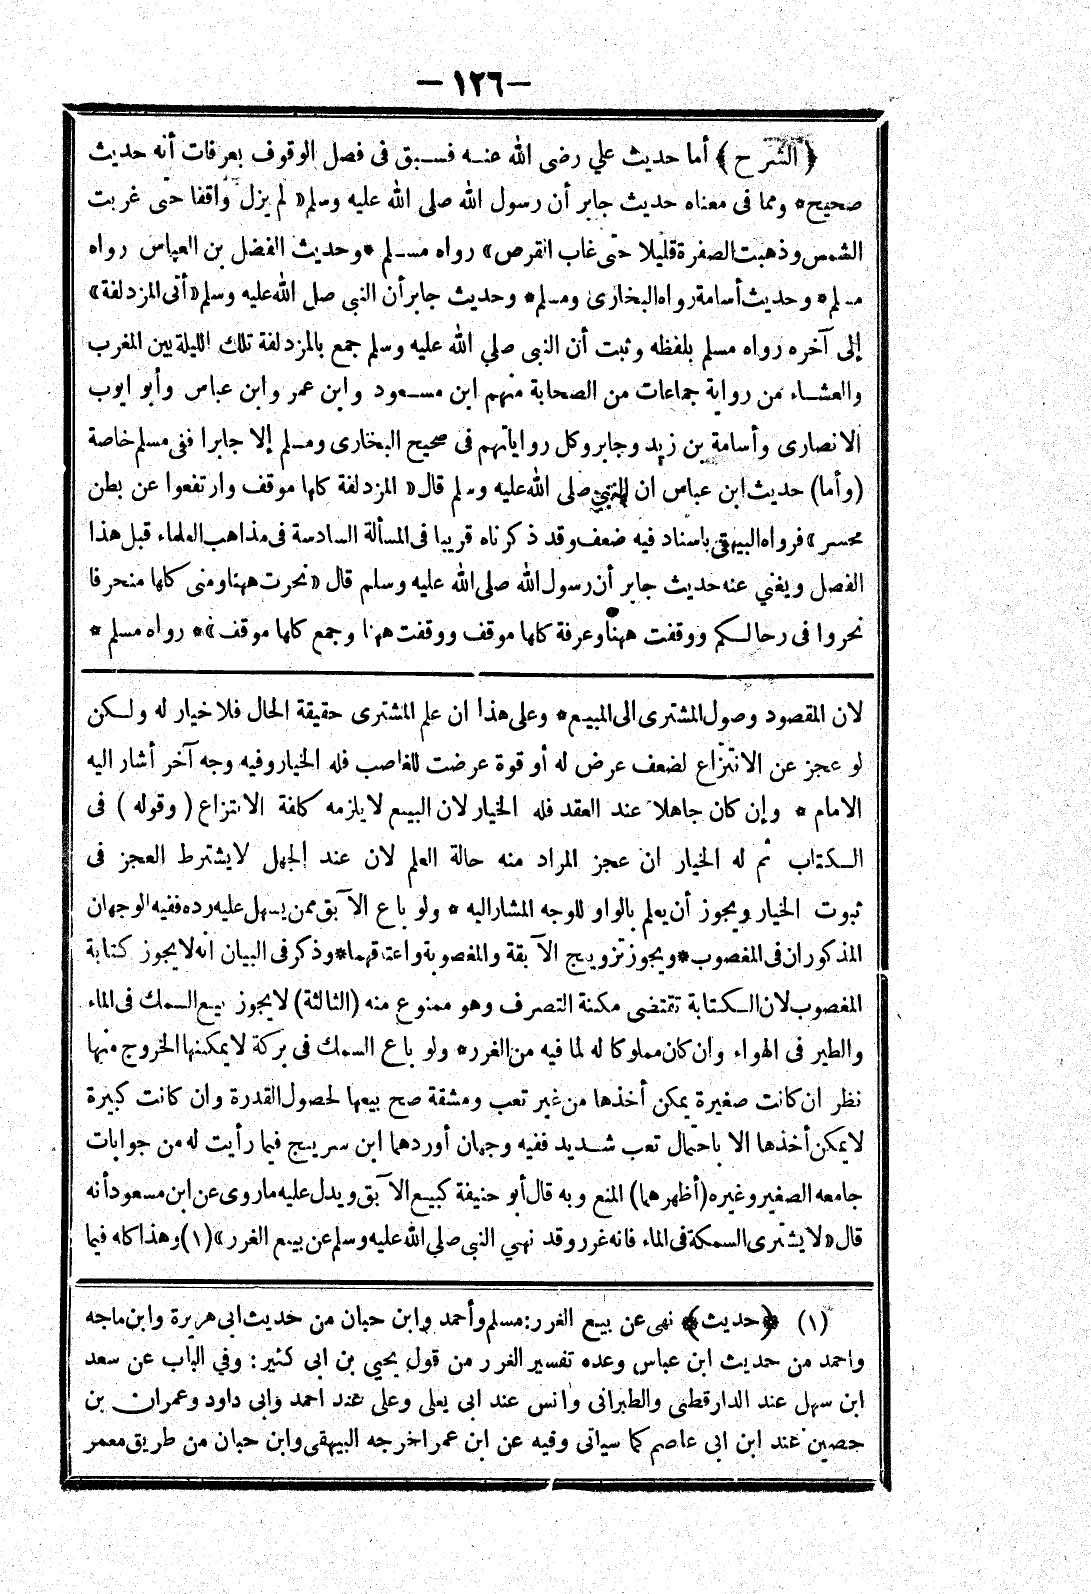 — ١٢٦ —
﴿ الشرح ﴾ أما حديث علي رضى الله عنه فسبق فى فصل الوقوف بعرفات أنه حديث
صحيح * ومما فى معناه حديث جابر أن رسول الله صلى الله عليه وسلم « لم يزل واقفا حتى غربت
الشمس وذهبت الصفرة قليلا حتى غاب القرص » رواه مسلم * وحديث الفضل بن العباس رواه
مسلم * وحديث أسامة رواه البخارى ومسلم * وحديث جابر أن النبى صلى الله عليه وسلم « أتى المزدلفة »
إلى آخره رواه مسلم بلفظه وثبت أن النبى صلي الله عليه وسلم جمع بالمزدلفة تلك الليلة بين المغرب
والعشاء من رواية جماعات من الصحابة منهم ابن مسعود وابن عمر وابن عباس وأبو ايوب
الانصارى وأسامة بن زيد وجابر وكل رواياتهم فى صحيح البخارى ومسلم إلا جابرا ففى مسلم خاصة
(وأما) حديث ابن عباس ان النبي صلى الله عليه وسلم قال « المزدلفة كلها موقف وارتفعوا عن بطن
محسر » فرواه البيهقى باسناد فيه ضعف وقد ذكرناه قريبا فى المسألة السادسة فى مذاهب العلماء قبل هذا
الفصل ويغني عنه حديث جابر أن رسول الله صلى الله عليه وسلم قال « نحرت ههنا ومنى كلها منحر فا
نحروا فى رحالكم ووقفت ههنا وعرفة كلها موقف ووقفت ههنا وجمع كلها موقف » * رواه مسلم *
لان المقصود وصول المشترى الى المبيع * وعلى هذا ان علم المشترى حقيقة الحال فلا خيار له ولكن
لو عجز عن الانتزاع لضعف عرض له أو قوة عرضت للغاصب فله الخيار وفيه وجه آخر أشار اليه
الامام * وإن كان جاهلا عند العقد فله الخيار لان البيع لا يلزمه كلفة الانتزاع ( وقوله ) فى
الكتاب ثم له الخيار ان عجز المراد منه حالة العلم لان عند الجهل لا يشترط العجز فى
ثبوت الخيار ويجوز أن يعلم بالواو للوجه المشار اليه * ولو باع الآبق ممن يسهل عليه رده ففيه الوجهان
المذكوران فى المغصوب * ويجوز تزويج الآبقة والمغصوبة واعتاقهما * وذكر فى البيان انه لا يجوز كتابة
المغصوب لان الكتابة تقتضى مكنة التصرف وهو ممنوع منه (الثالثة) لا يجوز بيع السمك فى الماء
والطير فى الهواء وان كان مملوكا له لما فيه من الغرر * ولو باع السمك فى بركة لا يمكنها الخروج منها
نظر ان كانت صغيرة يمكن أخذها من غير تعب ومشقة صح بيعها لحصول القدرة وان كانت كبيرة
لا يمكن أخذها الا باحتمال تعب شديد ففيه وجهان أوردهما ابن سريج فيما رأيت له من جوابات
جامعه الصغير وغيره (أظهرهما) المنع وبه قال أبو حنيفة كبيع الآبق ويدل عليه ما روى عن ابن مسعود أنه
قال « لا يشترى السمكة فى الماء فانه غرر وقد نهي النبى صلي الله عليه وسلم عن بيع الغرر » (١) وهذا كله فيما
(١) ﴿ حديث ﴾ نهى عن بيع الغرر : مسلم وأحمد وابن حبان من حديث ابى هريرة وابن ماجه
واحمد من حديث ابن عباس وعده تفسير الغرر من قول يحيي بن ابى كثير : وفي الباب عن سعد
ابن سهل عند الدارقطنى والطبرانى وانس عند ابى يعلى وعلى عند احمد وابى داود وعمران بن
حصين عند ابن ابي عاصم كما سياتى وفيه عن ابن عمر اخرجه البيهقى وابن حبان من طريق معمر